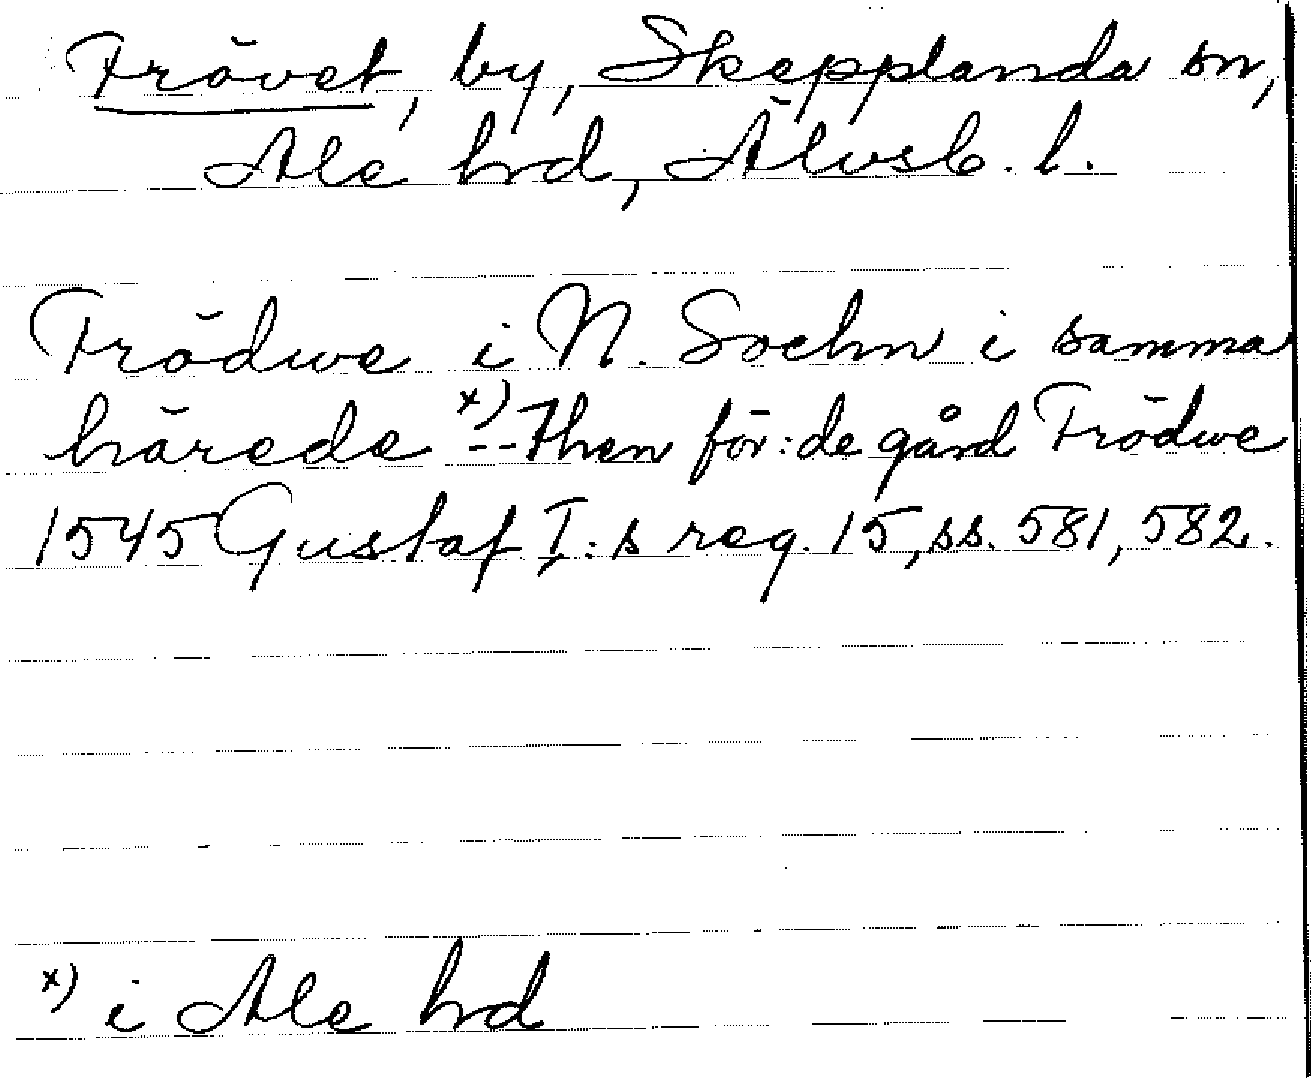 Frövet, by, Skepplanda sn,
Ale hrd, Älvsb. l.
Frödwe i N. Sochn i samma
härede x) -- Then för:de gård Frödwe
1545 Gustaf I:s reg. 15, ss. 581, 582.
x) i Ale hrd